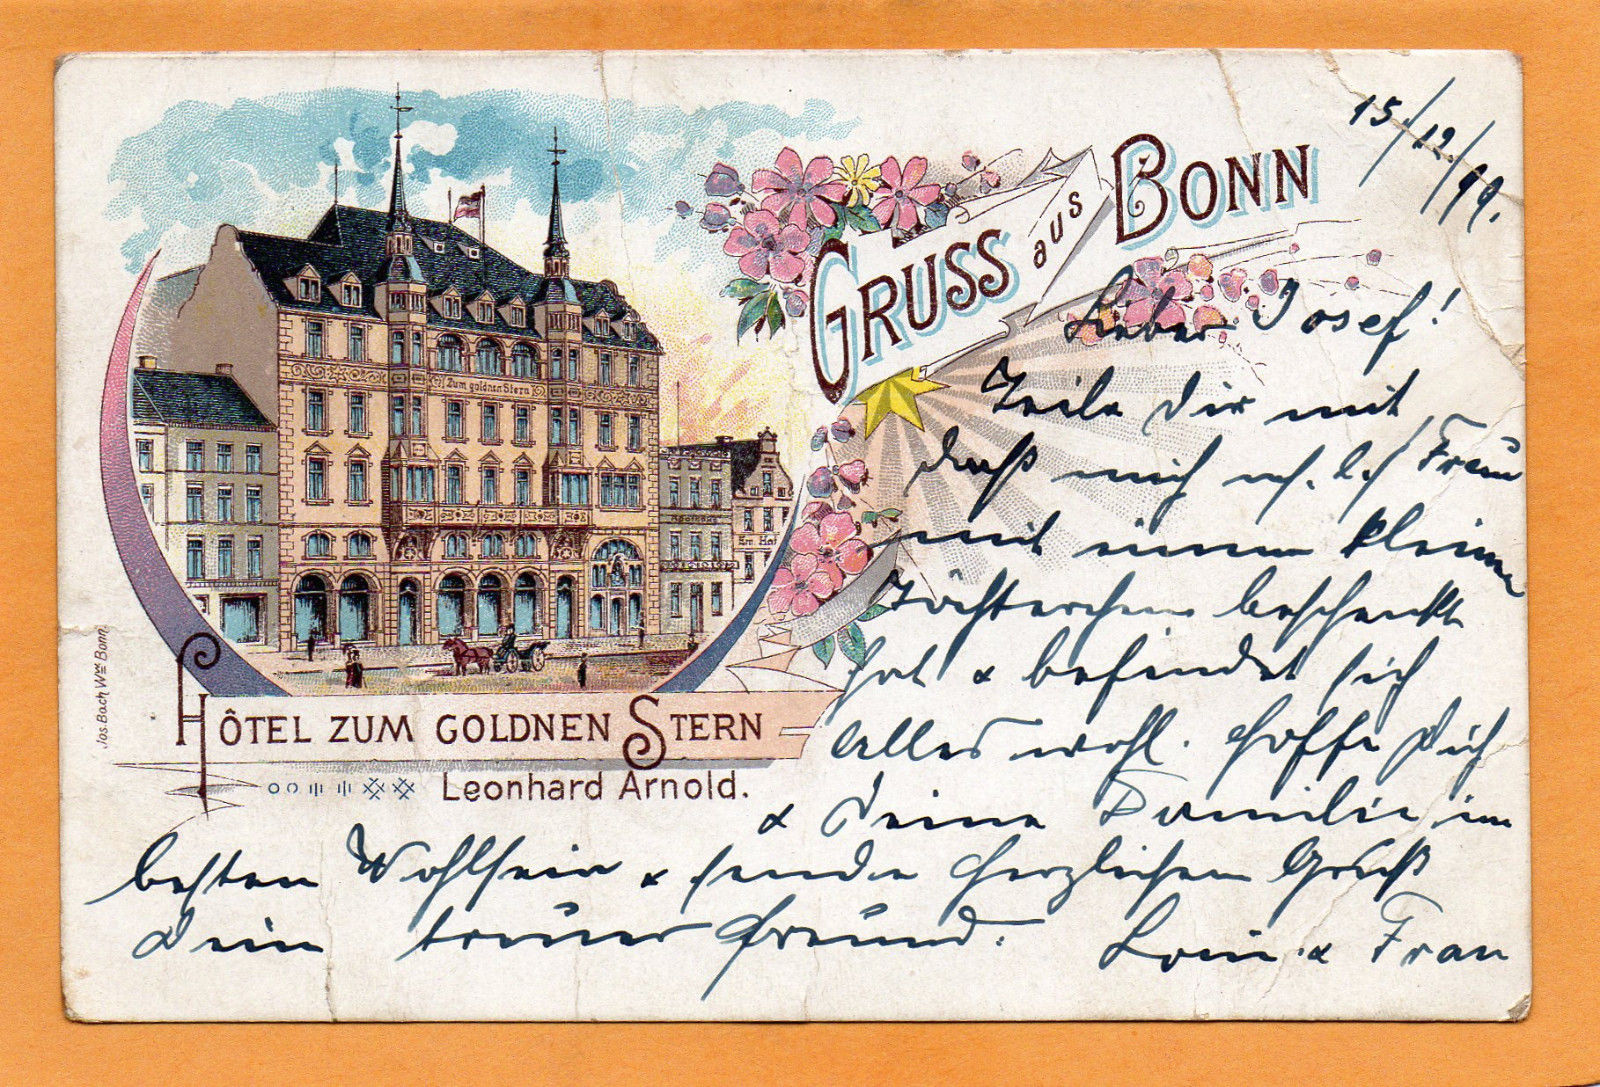 15./12/99.
GRUSS aus BONN
Lieber Josef!
Teile Dir mit
daß mich m. l. Frau
mit einem kleinen
Töchterchen beschenkt
hat & befindet sich
alles wohl. Hoffe Dich
& Deine Familie im
besten Wohlsein & sende herzlichen Gruß
Dein treuer Freund.
& Frau
Zum goldnen Stern
Apotheke
HÔTEL ZUM GOLDNEN STERN
Leonhard Arnold.
Jos. Bach Wwe Bonn